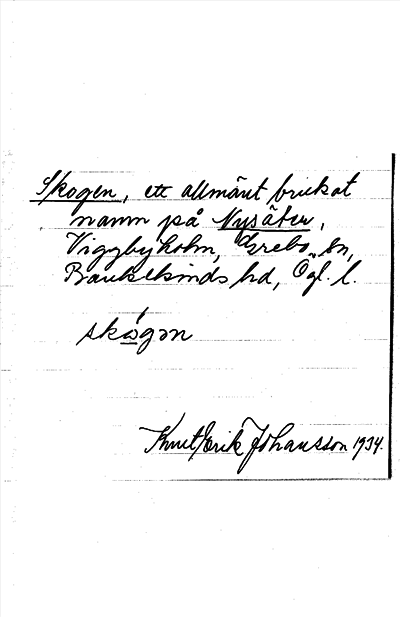 Skogen, ett allmänt brukat
namn på Nysäter,
Viggbyholm, Grebo sn,
Bankekinds hd, Ögl. l.
skógən
Knut Erik Johansson 1934.